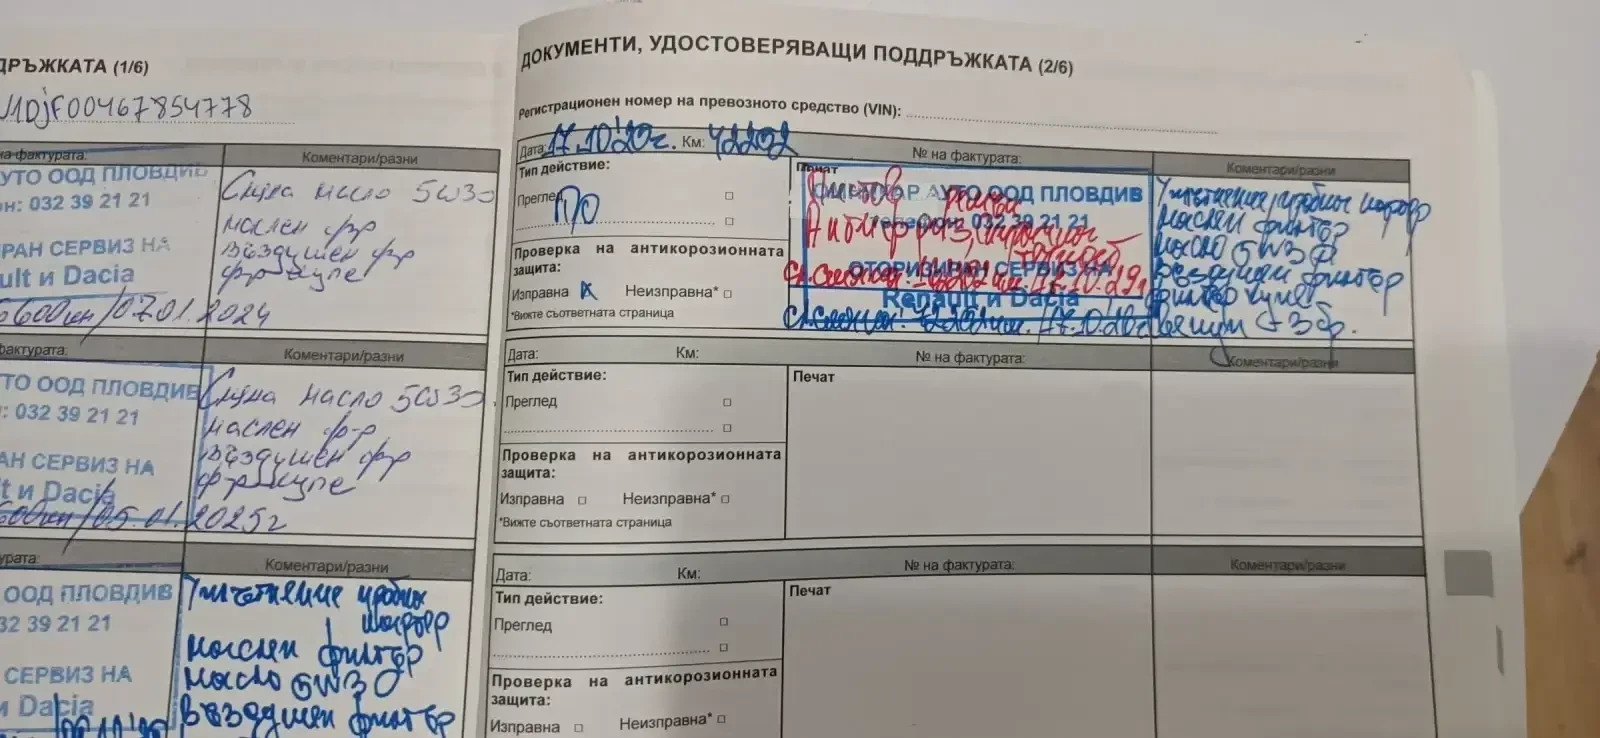 ДРЪЖКАТА (1/6)
U1DJF00467854778
на фактурата:
Коментари/разни
УТО ООД ПЛОВДИВ
он: 032 39 21 21
РАН СЕРВИЗ НА
ult и Dacia
Смяна масло 5W30
маслен ф-р
въздушен ф-р
ф-р купе
600км/07.01.2024
фактурата:
Коментари/разни
УТО ООД ПЛОВДИВ
: 032 39 21 21
АН СЕРВИЗ НА
t и Dacia
Смяна масло 5W30
маслен ф-р
въздушен ф-р
ф-р купе
600км/05.01.2025г
урата:
Коментари/разни
ООД ПЛОВДИВ
32 39 21 21
СЕРВИЗ НА
и Dacia
Уплътнение пробка
картер
маслен филтър
масло 5W30
въздушен филтър
ДОКУМЕНТИ, УДОСТОВЕРЯВАЩИ ПОДДРЪЖКАТА (2/6)
Регистрационен номер на превозното средство (VIN):
Дата: 17.10'20г. Км: 42202
№ на фактурата:
Коментари/разни
Тип действие:
Преглед
ПО
Проверка на антикорозионната
защита:
Изправна X Неизправна*
*Вижте съответната страница
Печат
АУТО ООД ПЛОВДИВ
032 39 21 21
ОТОРИЗИРАН СЕРВИЗ НА
Renault и Dacia
ремък
Антифриз,
Уплътнение пробка картер
маслен филтър
масло 5W30
въздушен филтър
филтър купе
Дата:
Км:
№ на фактурата:
Коментари/разни
Тип действие:
Преглед
Проверка на антикорозионната
защита:
Изправна Неизправна*
*Вижте съответната страница
Печат
Дата:
Км:
№ на фактурата:
Коментари/разни
Тип действие:
Преглед
Проверка на антикорозионната
защита:
Изправна Неизправна*
Печат